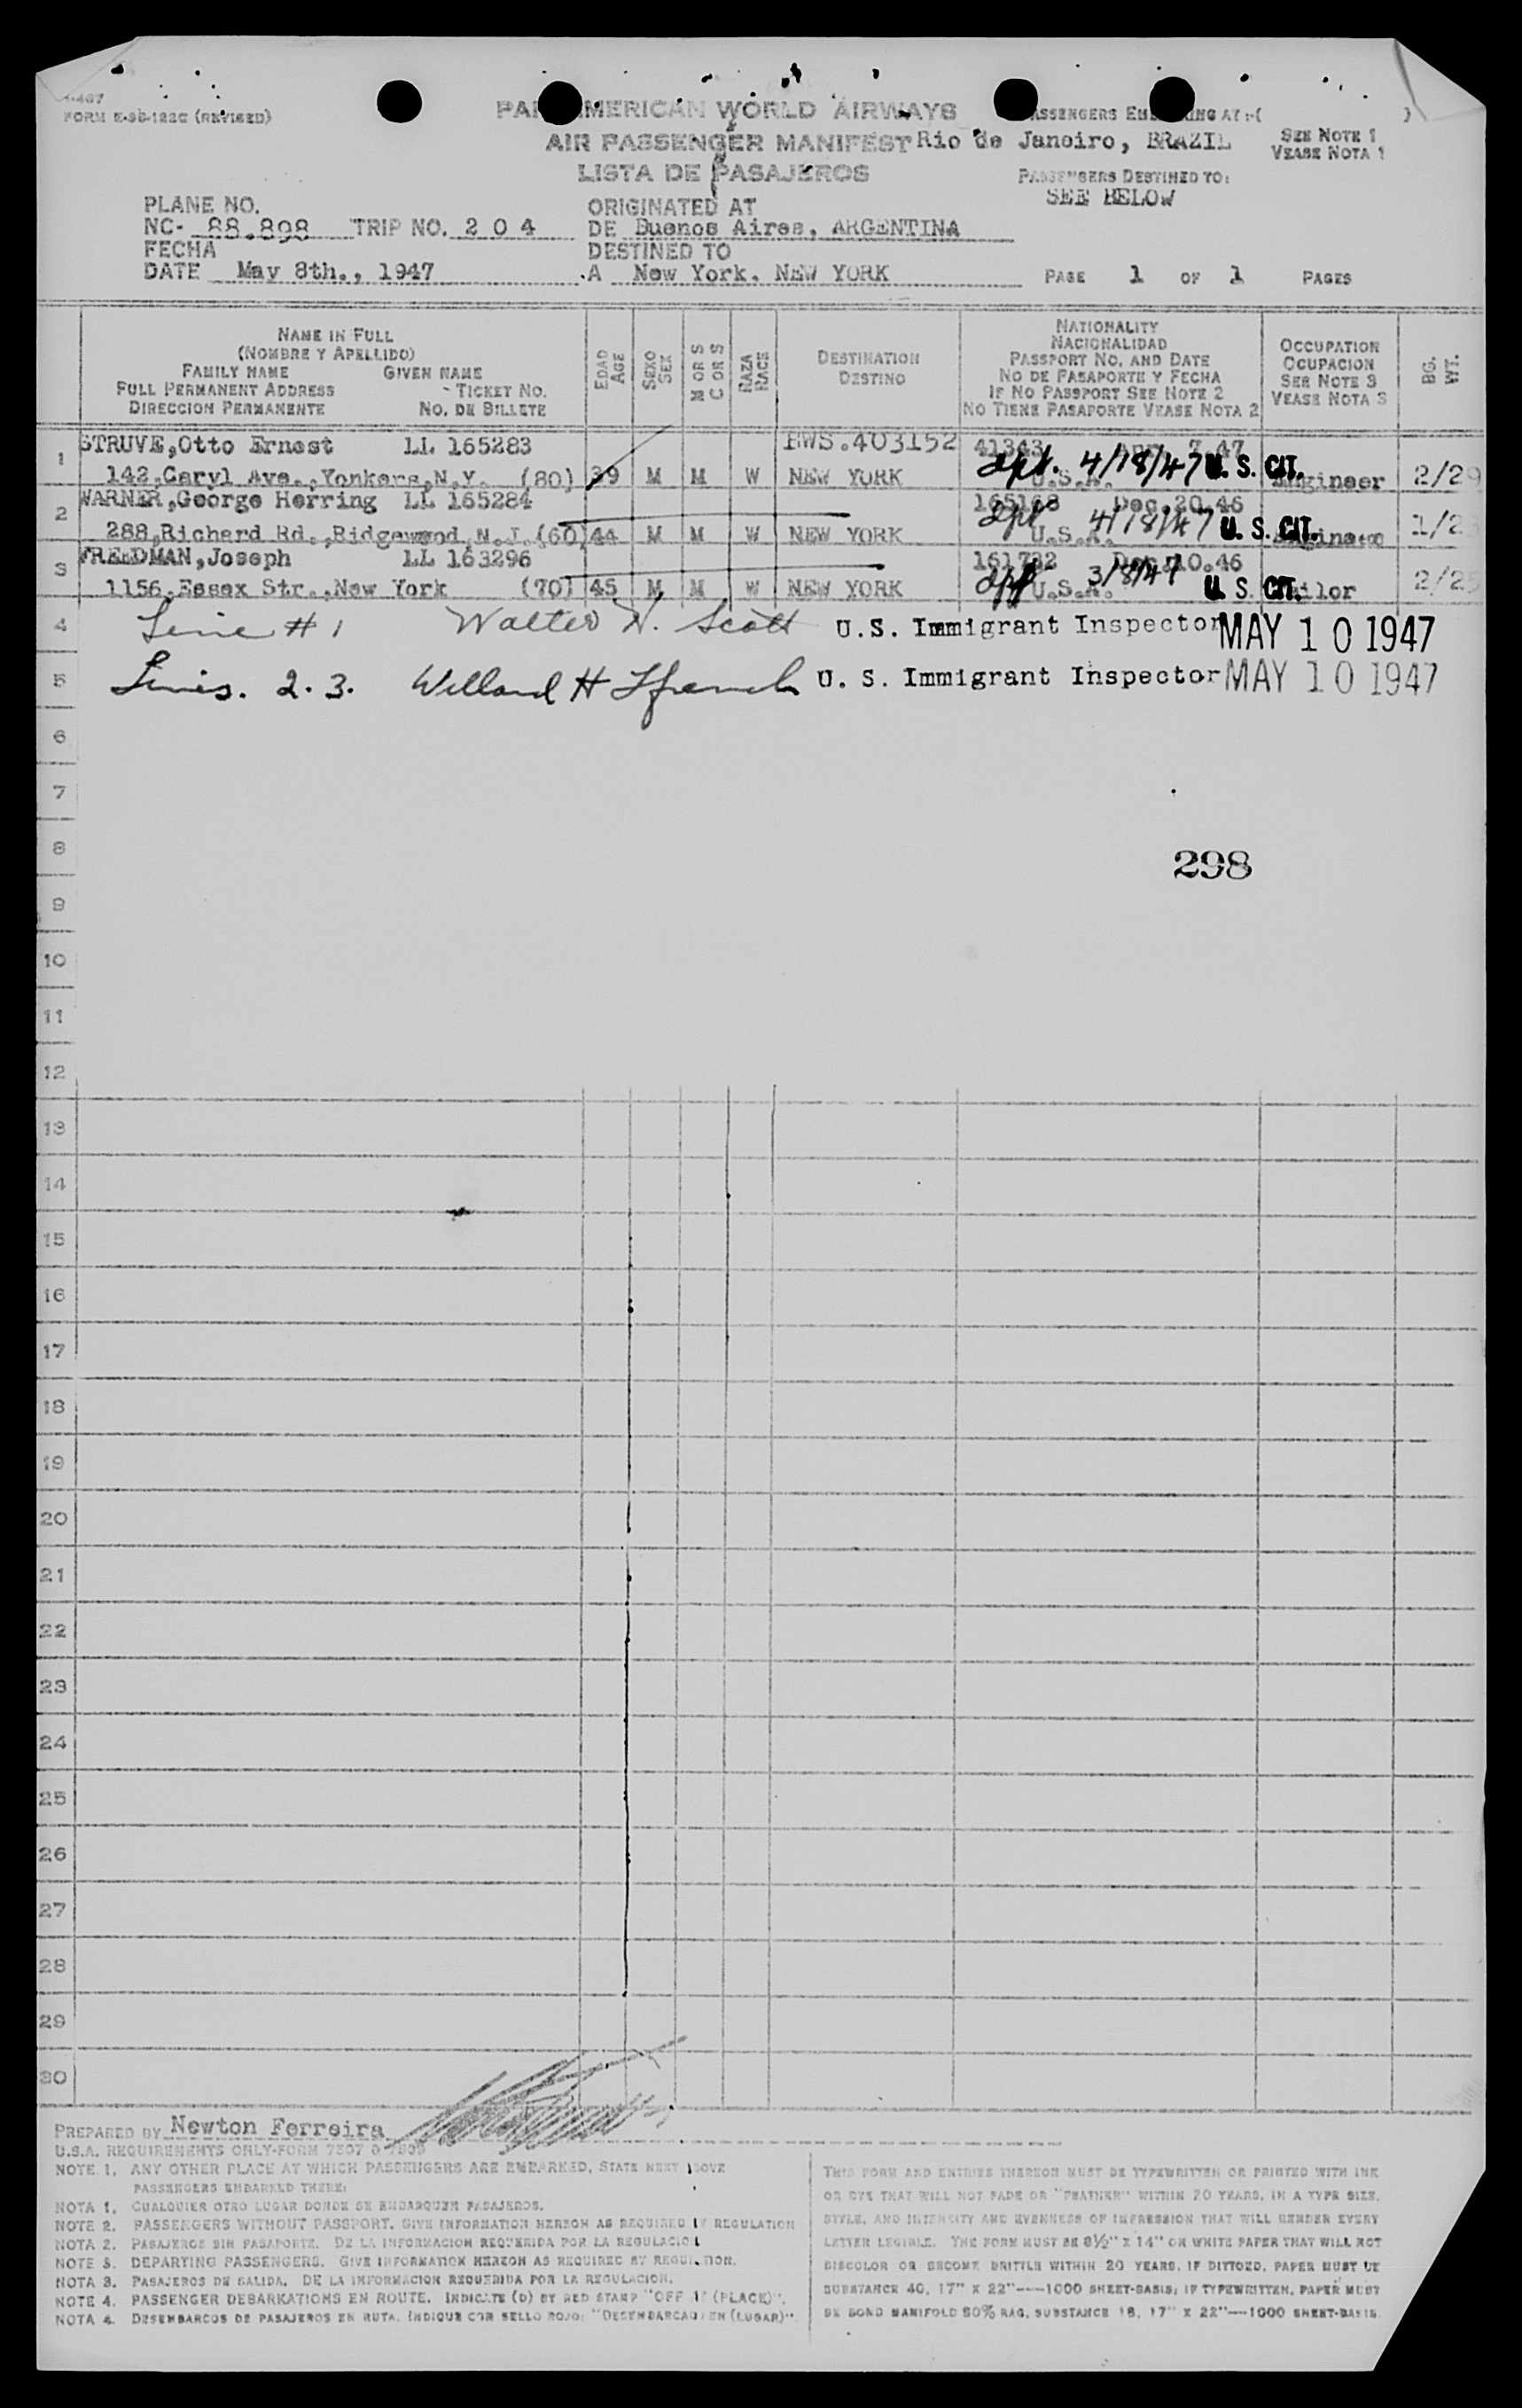 FORM E-SB-122C (REVISED)
PAN AMERICAN WORLD AIRWAYS
AIR PASSENGER MANIFEST
LISTA DE PASAJEROS
PASSENGERS EMBARKING AT:-( )
Rio de Janeiro, BRAZIL
SEE NOTE 1
VEASE NOTA 1
PASSENGERS DESTINED TO:
SEE BELOW
PLANE NO.
NC- 88.898 TRIP NO. 2 0 4
FECHA
DATE May 8th., 1947
ORIGINATED AT
DE Buenos Aires, ARGENTINA
DESTINED TO
A New York. NEW YORK
PAGE 1 OF 1 PAGES
NAME IN FULL
(NOMBRE Y APELLIDO)
FAMILY NAME GIVEN NAME
FULL PERMANENT ADDRESS - TICKET NO.
DIRECCION PERMANENTE NO. DE BILLETE
EDAD
AGE
SEXO
SEX
M OR S
C OR S
RAZA
RACE
DESTINATION
DESTINO
NATIONALITY
NACIONALIDAD
PASSPORT NO. AND DATE
NO DE PASAPORTE Y FECHA
IF NO PASSPORT SEE NOTE 2
NO TIENE PASAPORTE VEASE NOTA 2
OCCUPATION
OCUPACION
SEE NOTE 3
VEASE NOTA 3
BG.
WT.
1 STRUVE,Otto Ernest LL 165283 EWS.403152 41343 7.47
142,Caryl Ave.,Yonkers,N.Y. (80) 39 M M W NEW YORK U.S.A. 4/18/47 U. S. CIT. Engineer 2/29
2 WARNER,George Herring LL 165284 165168 Dec.20.46
288,Richard Rd.,Ridgewood,N.J.(60) 44 M M W NEW YORK U.S.A. 4/18/47 U. S. CIT. 1/2
3 FREEDMAN,Joseph LL 163296 161732 Dec.10.46
1156,Essex Str.,New York (70) 45 M M W NEW YORK U.S.A. 3/8/47 U. S. CIT. 2/25
4 Line # 1 Walter W. Scott U.S. Immigrant Inspector MAY 10 1947
5 Lines. 2. 3. Willard H U. S. Immigrant Inspector MAY 10 1947
6
7
8
298
9
10
11
12
13
14
15
16
17
18
19
20
21
22
23
24
25
26
27
28
29
30
PREPARED BY Newton Ferreira
U.S.A. REQUIREMENTS ONLY-FORM 7507
NOTE 1. ANY OTHER PLACE AT WHICH PASSENGERS ARE EMBARKED, STATE NEXT ABOVE
PASSENGERS EMBARKED THERE:
NOTA 1. CUALQUIER OTRO LUGAR DONDE SE EMBARQUEN PASAJEROS.
NOTE 2. PASSENGERS WITHOUT PASSPORT. GIVE INFORMATION HEREON AS REQUIRED BY REGULATION
NOTA 2. PASAJEROS SIN PASAPORTE. DE LA INFORMACION REQUERIDA POR LA REGULACION
NOTE 3. DEPARTING PASSENGERS. GIVE INFORMATION HEREON AS REQUIRED BY REGULATION.
NOTA 3. PASAJEROS DE SALIDA. DE LA INFORMACION REQUERIDA POR LA REGULACION.
NOTE 4. PASSENGER DEBARKATIONS EN ROUTE. INDICATE (D) BY RED STAMP "OFF AT (PLACE)".
NOTA 4. DESEMBARCOS DE PASAJEROS EN RUTA. INDIQUE CON SELLO ROJO: "DESEMBARCADO EN (LUGAR)".
THIS FORM AND ENTRIES THEREON MUST BE TYPEWRITTEN OR PRINTED WITH INK
OR DYE THAT WILL NOT FADE OR "FEATHER" WITHIN 20 YEARS, IN A TYPE SIZE,
STYLE, AND INTENSITY AND EVENNESS OF IMPRESSION THAT WILL RENDER EVERY
LETTER LEGIBLE. THE FORM MUST BE 8½" X 14" ON WHITE PAPER THAT WILL NOT
DISCOLOR OR BECOME BRITTLE WITHIN 20 YEARS. IF DITTOED, PAPER MUST BE
SUBSTANCE 40, 17" X 22"----1000 SHEET-BASIS; IF TYPEWRITTEN, PAPER MUST
BE BOND MANIFOLD 50% RAG, SUBSTANCE 16, 17" X 22"---1000 SHEET-BASIS.